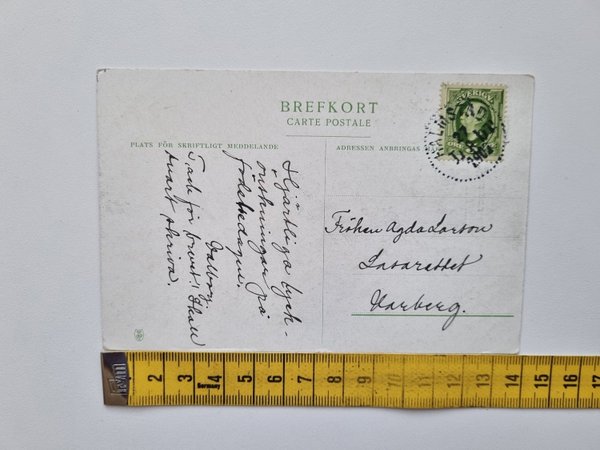 BREFKORT
CARTE POSTALE
PLATS FÖR SKRIFTLIGT MEDDELANDE
ADRESSEN ANBRINGAS
SVERIGE
Hjärtliga lyck-
önskningar på
födelsedagen.
Valborg
Tack för brevet! Skall
snart skriva.
Fröken Agda Larson
Lasarettet
Varberg.
2 3 4 5 6 7 8 9 10 11 12 13 14 15 16 17
Germany